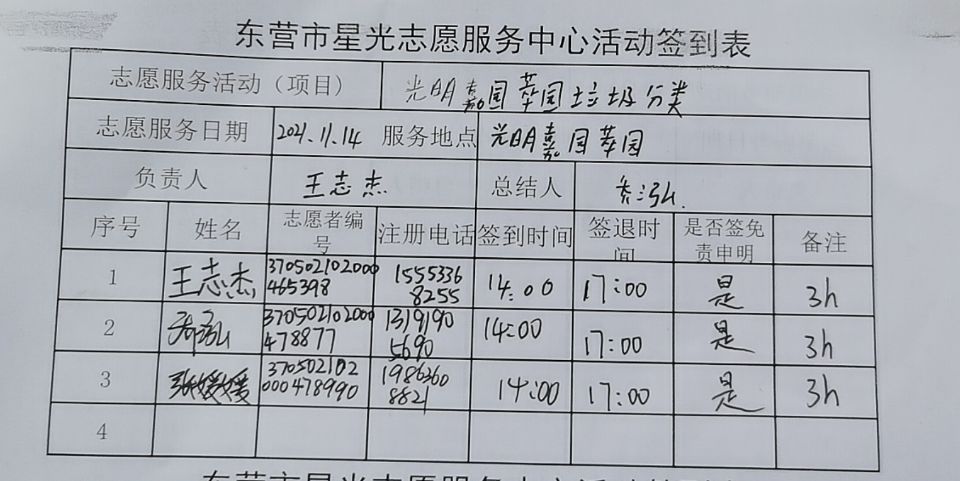 东营市星光志愿服务中心活动签到表
志愿服务活动（项目） 光明嘉园莘园垃圾分类
志愿服务日期 2021.11.14 服务地点 光明嘉园莘园
负责人 王志杰 总结人 泓
序号 姓名 志愿者编号 注册电话 签到时间 签退时间 是否签免责申明 备注
1 王志杰 370502102000 1555336 14:00 17:00 是 3h
465398 8255
2 370502102000 1319190 14:00 17:00 是 3h
478877 5690
3 张媛媛 370502102 1986360 14:00 17:00 是 3h
000478990 8821
4
东营市星光志愿服务中心活动签到表